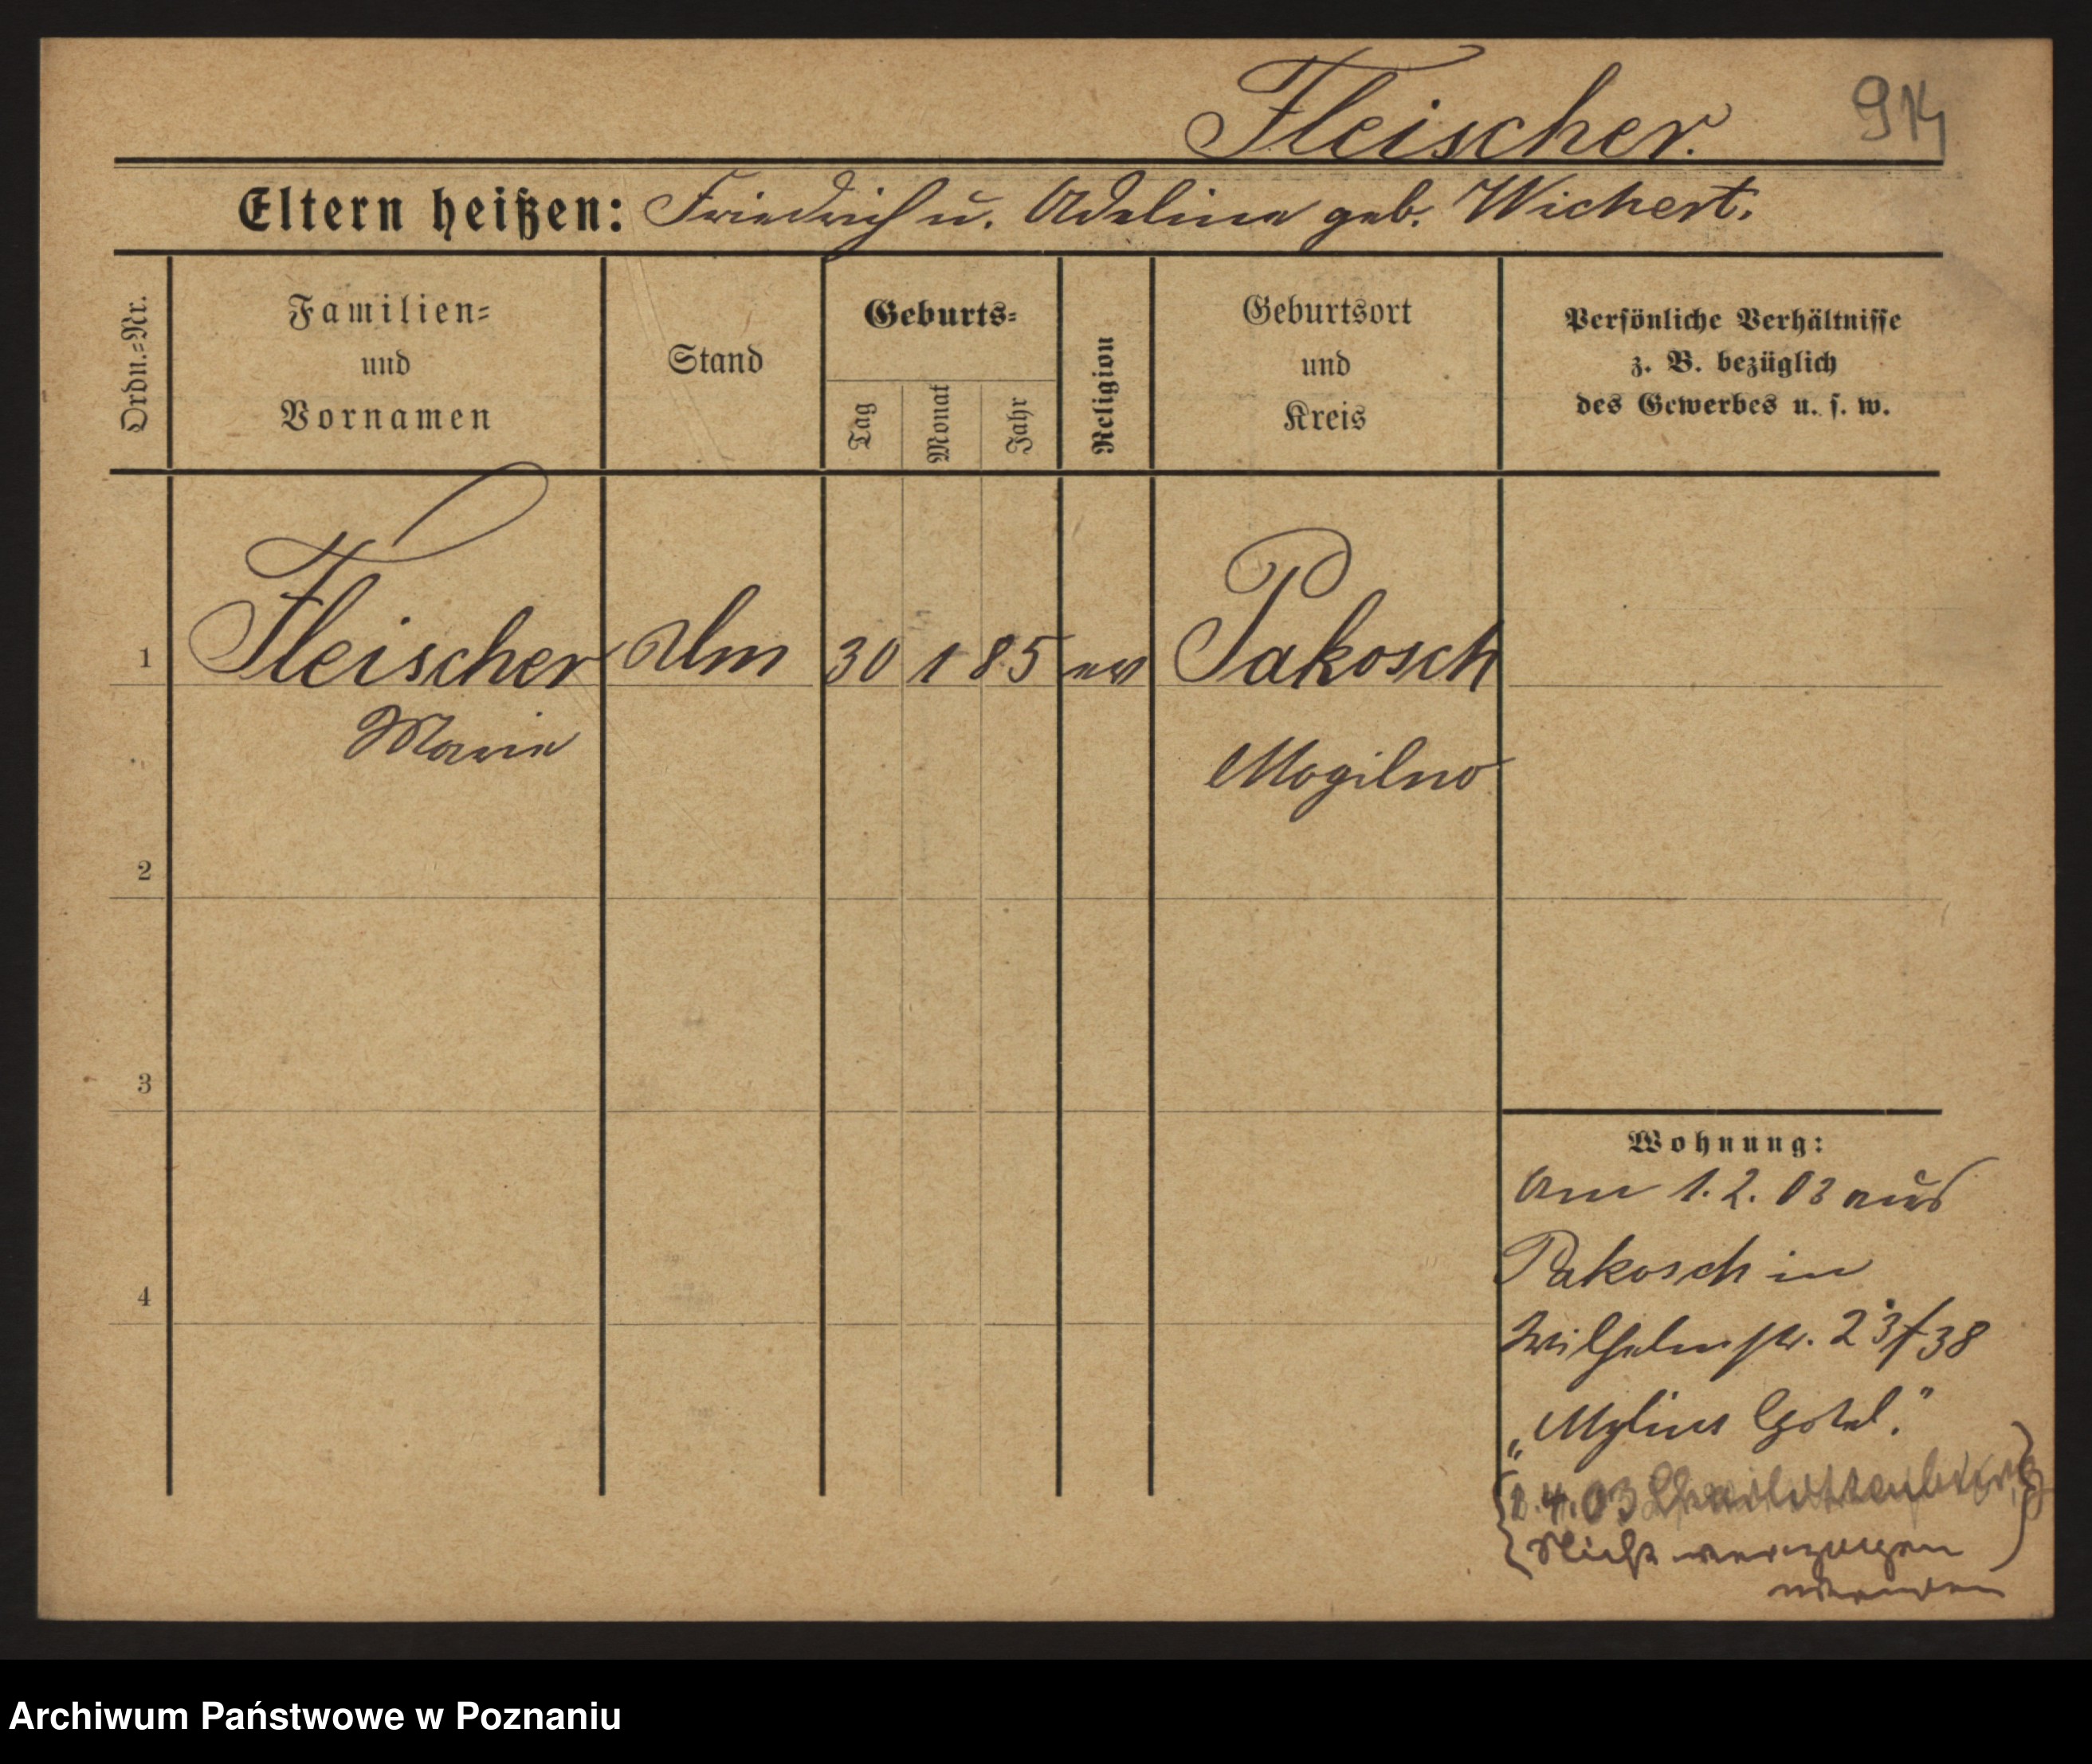 Fleischer.
914
Eltern heißen: Friedrich u. Adeline geb. Wichert.
Ordn.=Nr.
Familien=
und
Vornamen
Stand
Geburts=
Tag
Monat
Jahr
Religion
Geburtsort
und
Kreis
Persönliche Verhältnisse
z. B. bezüglich
des Gewerbes u. s. w.
1 Fleischer 30 1 85 ev Pakosch
Marie
Mogilno
2
3
4
Wohnung:
Am 1. 2. 03 aus
Pakosch in
Wilhelmstr. 23/38
„Mylius Hotel."
2.4.03 Charlottenburg
Nicht verzogen
Archiwum Państwowe w Poznaniu